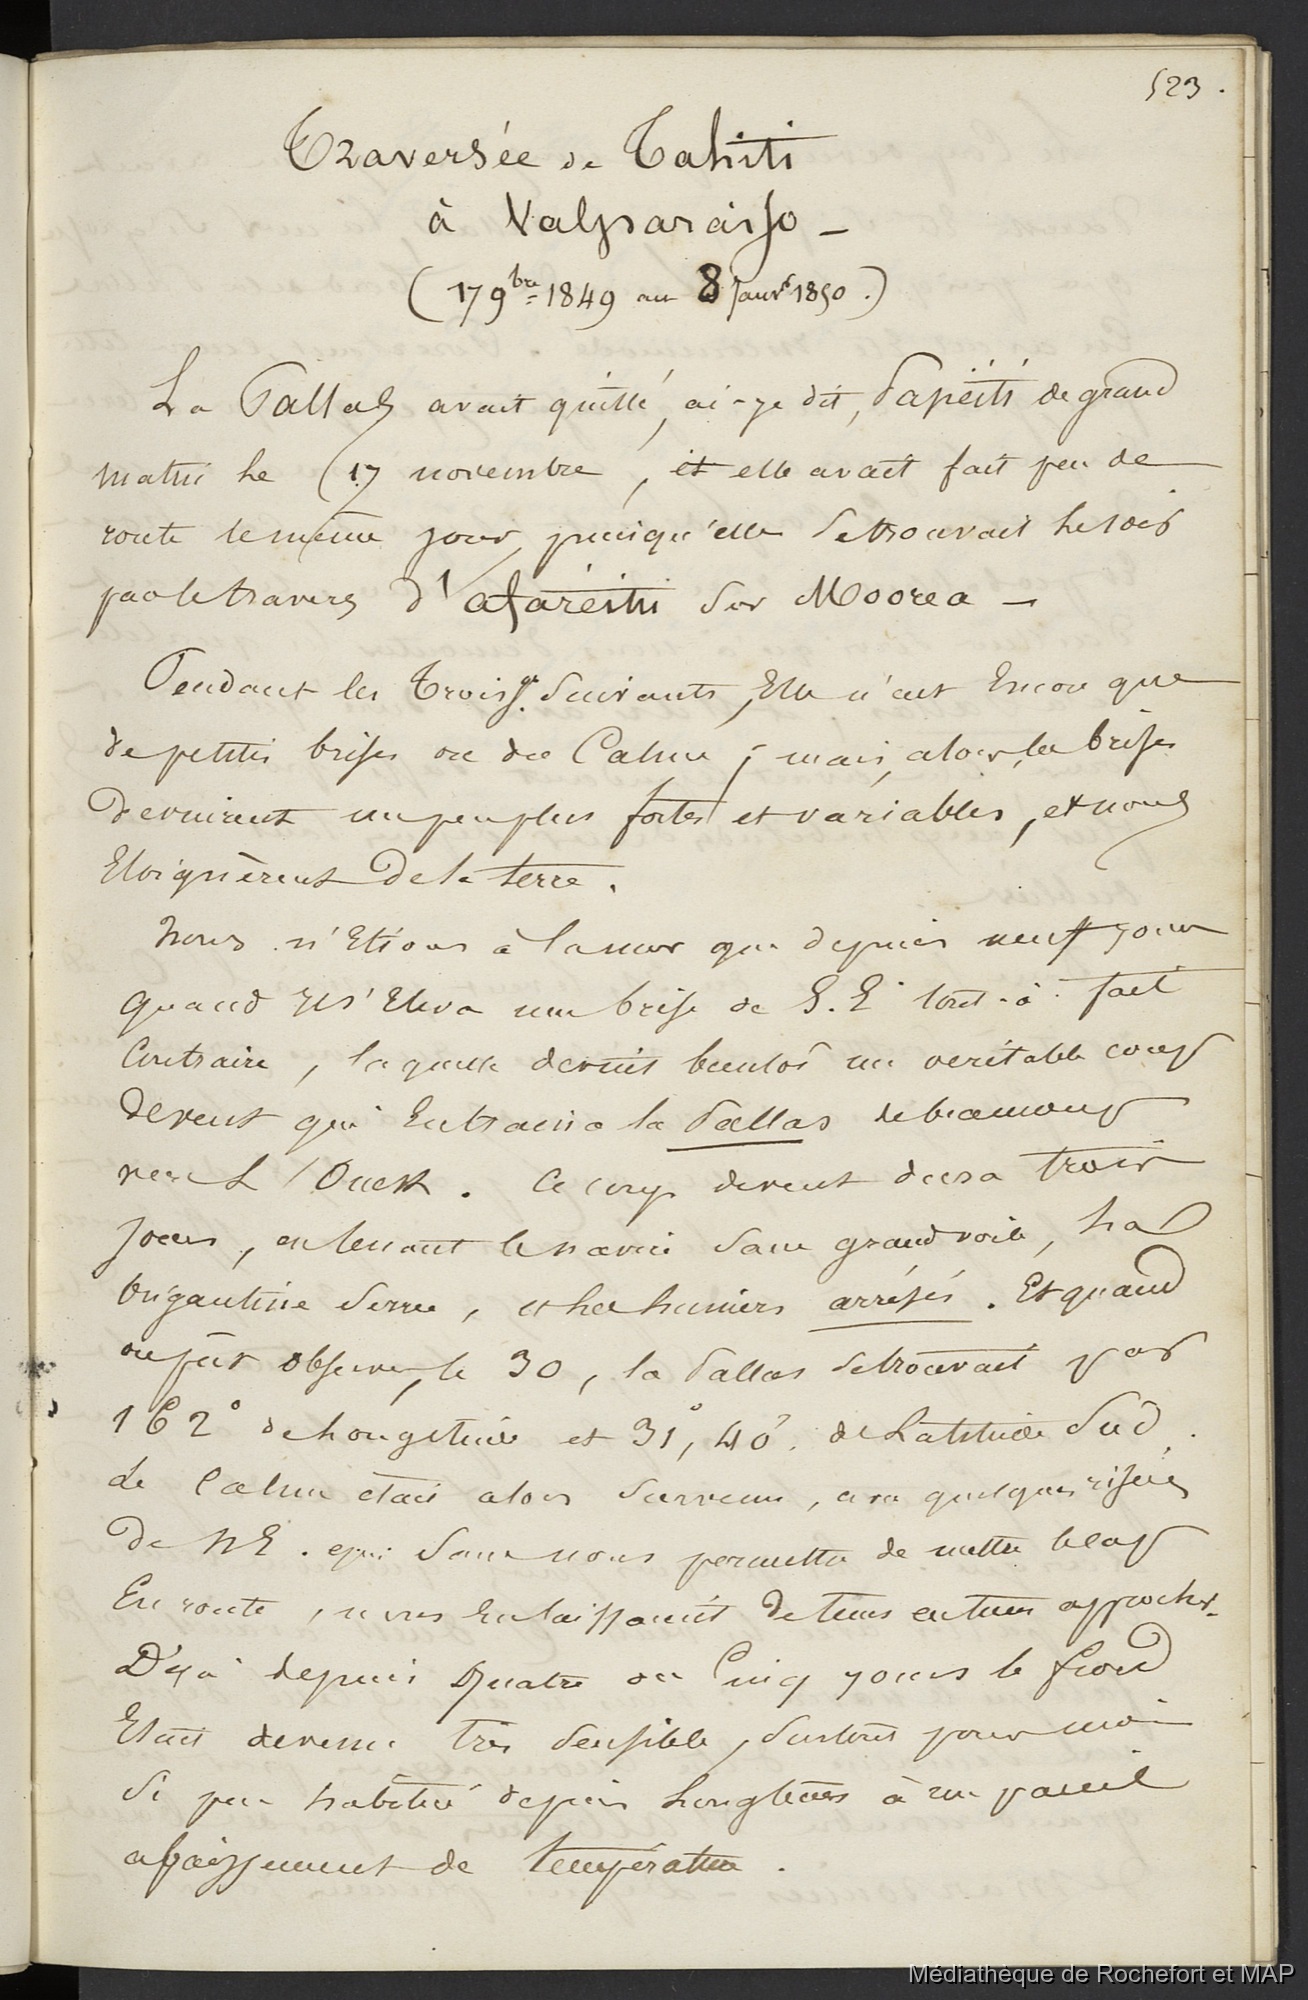 523.
Traversée de Tahiti
à Valparaiso –
(17 9bre 1849 au 8 janvr 1850.)
La Pallas avait quitté, ai-je dit, Papéïti de grand
matin le 17 novembre, et elle avait fait peu de
route le même jour, puisqu'elle se trouvait le soir
par le travers d'Afaréïti sur Moorea –
Pendant les trois jrs suivants, Elle n'eut Encore que
de petites brises ou du Calme ; mais, alors, les brises
devinrent un peu plus fortes et variables, et nous
Eloignèrent de la terre.
Nous n'Etions à la mer que depuis neuf jours
quand il s'Eleva une brise de S.E. tout-à-fait
Contraire, laquelle devint bientôt un veritable coup
de vent qui Entraina la Pallas de beaucoup
vers L'Ouest. Ce coup de vent dura trois
jours, en tenant le navire sans grand voile, la
brigantine serrée, et les huniers arrisés. Et quand
on put observer, le 30, la Pallas se trouvait par
162° de Longitude et 31°, 40'. de Latitude Sud.
Le Calme était alors survenu, avec quelques risées
de NE. qui sans nous permettre de mettre le cap
En route, nous En laissaient de tems en tems approcher.
Déjà depuis Quatre ou Cinq jours le froid
Etait devenu très sensible, surtout pour moi
si peu habitué depuis longtems à un pareil
abaissement de température.
Médiathèque de Rochefort et MAP